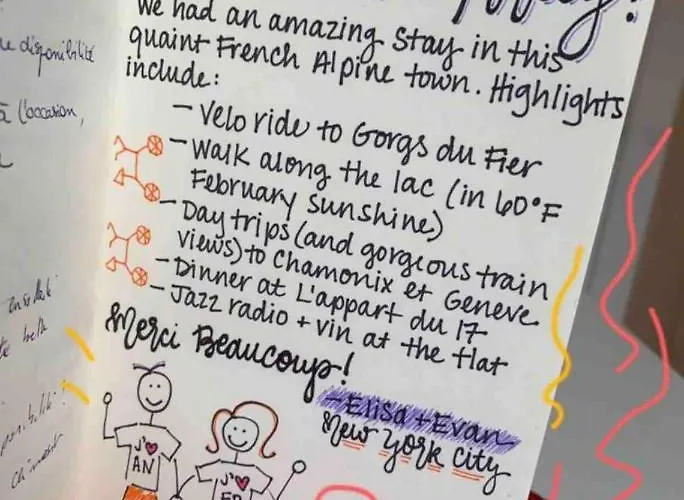 We had an amazing stay in this
quaint French Alpine town. Highlights
include:
- Velo ride to Gorgs du Fier
- Walk along the lac (in 60°F
February sunshine)
- Day trips (and gorgeous train
views) to Chamonix et Geneve
- Dinner at L'appart du 17
- Jazz radio + vin at the flat
Merci Beaucoup!
- Elisa + Evan
New York City
J'♥
AN
J'♥
disponibilité
à l'occasion,